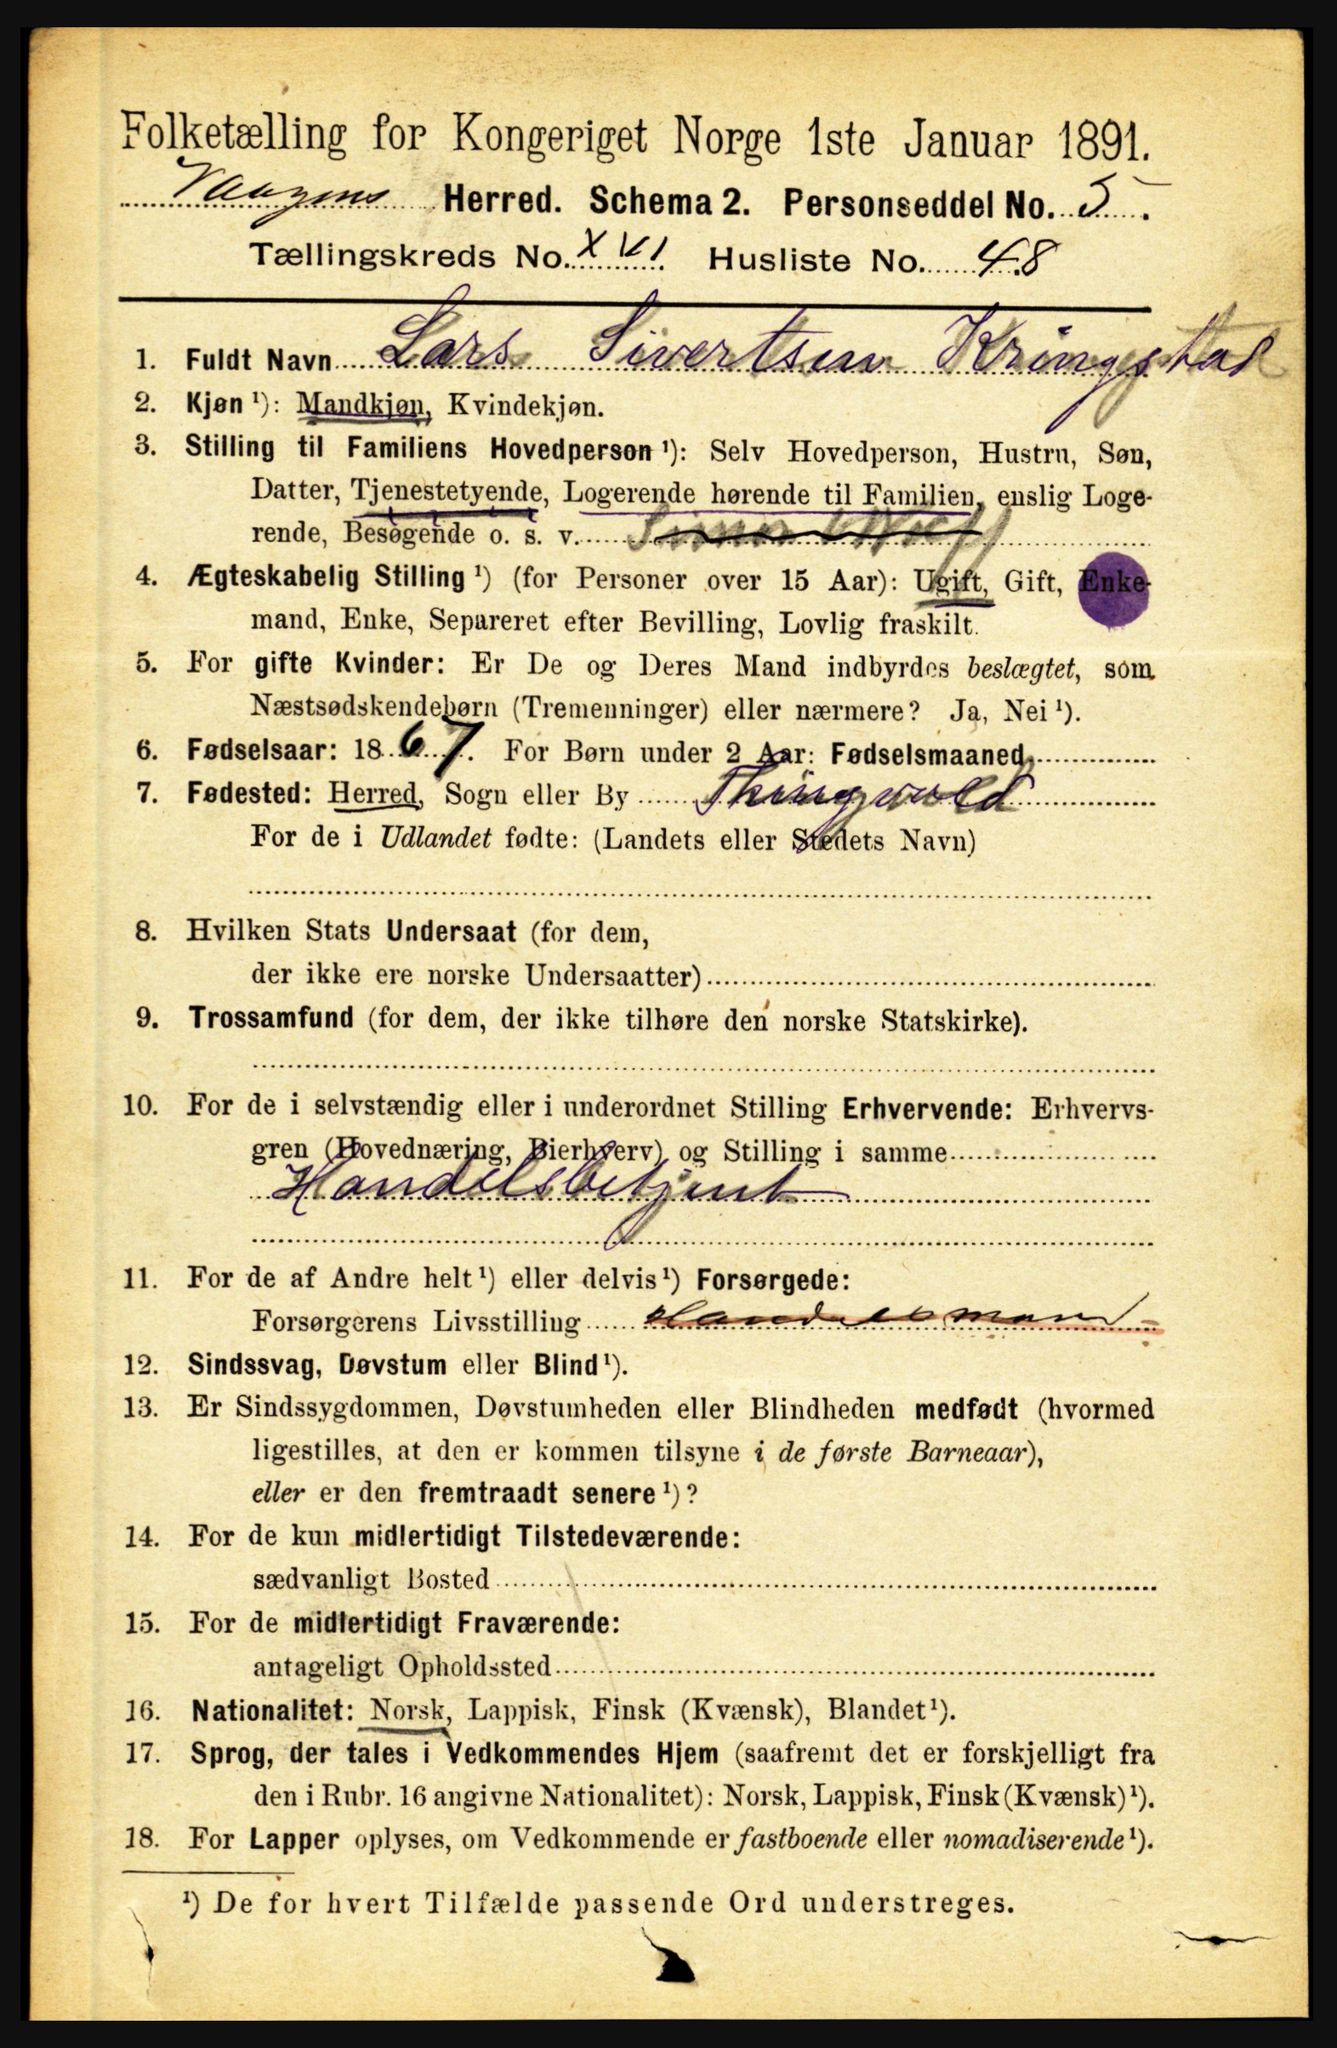 Folketælling for Kongeriget Norge 1ste Januar 1891.
Vaagens Herred. Schema 2. Personseddel No. 5.
Tællingskreds No. XVI Husliste No. 48
1. Fuldt Navn Lars Sivertsen Kringstad
2. Kjøn ¹): Mandkjøn, Kvindekjøn.
3. Stilling til Familiens Hovedperson ¹): Selv Hovedperson, Hustru, Søn,
Datter, Tjenestetyende, Logerende hørende til Familien, enslig Loge-
rende, Besøgende o. s. v.
4. Ægteskabelig Stilling ¹) (for Personer over 15 Aar): Ugift, Gift, Enke-
mand, Enke, Separeret efter Bevilling, Lovlig fraskilt.
5. For gifte Kvinder: Er De og Deres Mand indbyrdes beslægtet, som
Næstsødskendebørn (Tremenninger) eller nærmere? Ja, Nei ¹).
6. Fødselsaar: 1867. For Børn under 2 Aar: Fødselsmaaned
7. Fødested: Herred, Sogn eller By Thingvold
For de i Udlandet fødte: (Landets eller Stedets Navn)
8. Hvilken Stats Undersaat (for dem,
der ikke ere norske Undersaatter)
9. Trossamfund (for dem, der ikke tilhøre den norske Statskirke).
10. For de i selvstændig eller i underordnet Stilling Erhvervende: Erhvervs-
gren (Hovednæring, Bierhverv) og Stilling i samme
Handelsbetjent
11. For de af Andre helt ¹) eller delvis ¹) Forsørgede:
Forsørgerens Livsstilling Handelsmand
12. Sindssvag, Døvstum eller Blind ¹).
13. Er Sindssygdommen, Døvstumheden eller Blindheden medfødt (hvormed
ligestilles, at den er kommen tilsyne i de første Barneaar),
eller er den fremtraadt senere ¹)?
14. For de kun midlertidigt Tilstedeværende:
sædvanligt Bosted
15. For de midlertidigt Fraværende:
antageligt Opholdssted
16. Nationalitet: Norsk, Lappisk, Finsk (Kvænsk), Blandet ¹).
17. Sprog, der tales i Vedkommendes Hjem (saafremt det er forskjelligt fra
den i Rubr. 16 angivne Nationalitet): Norsk, Lappisk, Finsk (Kvænsk) ¹).
18. For Lapper oplyses, om Vedkommende er fastboende eller nomadiserende ¹).
¹) De for hvert Tilfælde passende Ord understreges.